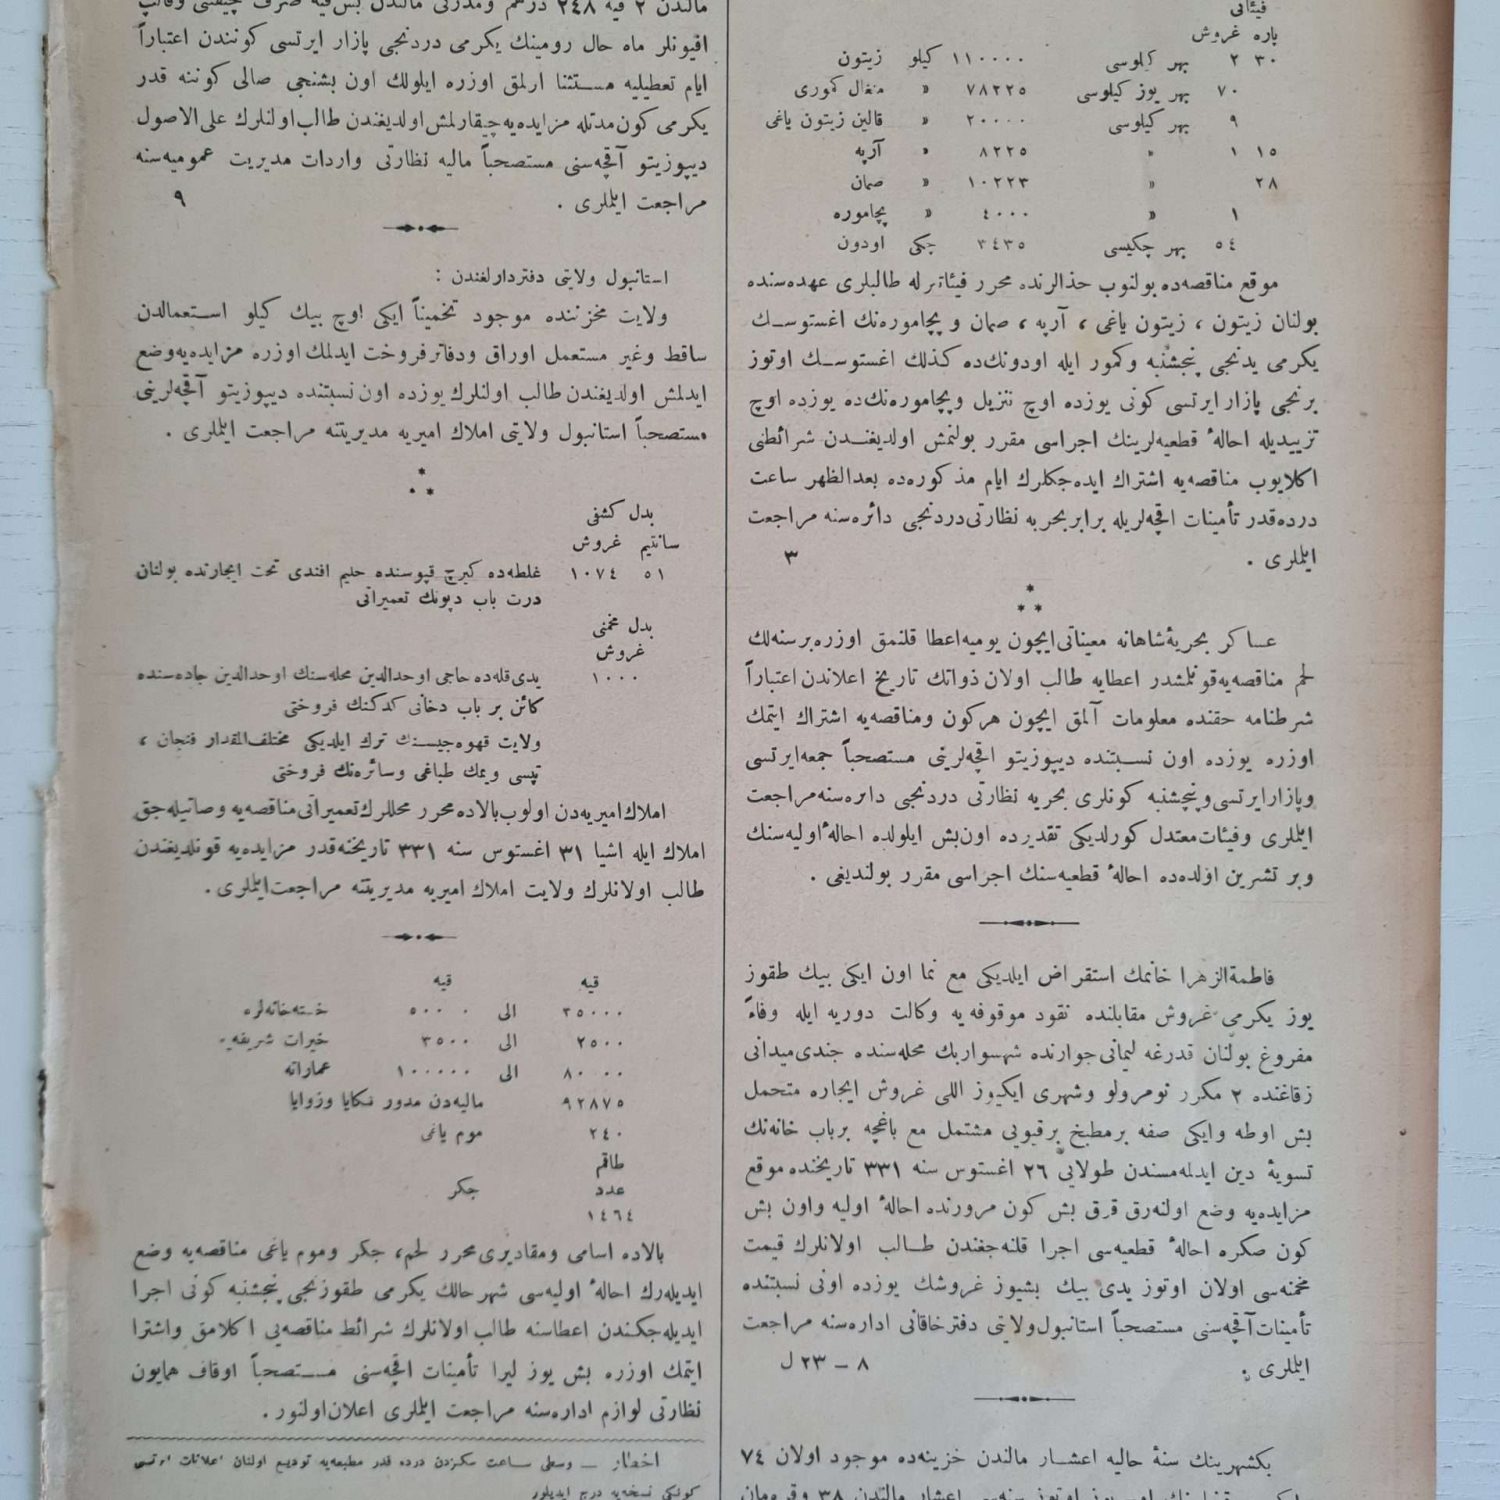 فیئاتی
پاره غروش
٣٠ ٢ بهر کیلوسی ١١٠٠٠٠ کیلو زیتون
٧٠ بهر یوز کیلوسی ٧٨٢٢٥ » منغال کموری
٩ بهر کیلوسی ٢٠٠٠٠ » قالین زیتون یاغی
١٥ ١ » ٨٢٢٥ » آرپه
٢٨ » ١٠٢٢٣ » صمان
١ » ٤٠٠٠ » پچاموره
٥٤ بهر چکیسی ٣٤٣٥ چکی اودون
موقع مناقصه‌ده بولنوب حذالرنده محرر فیئاترله طالبلری عهده‌سنده
بولنان زیتون ، زیتون یاغی ، آرپه ، صمان و پچاموره‌نك اغستوسـك
یکرمی یدنجی پنجشنبه وکمور ایله اودونك‌ده کذلك اغستوسـك اوتوز
برنجی پازار ایرتسی کونی یوزده اوچ تنزیل وپچاموره‌نك‌ده یوزده اوچ
تزییدیله احالۀ قطعیه‌لرینك اجراسی مقرر بولنمش اولدیغندن شرائطنی
اکلایوب مناقصه‌یه اشتراك ایده‌جکلرك ایام مذکوره‌ده بعدالظهر ساعت
درده‌قدر تأمینات اقچه‌لریله برابر بحریه نظارتی دردنجی دائره‌سنه مراجعت
ایللری . ٣
* * *
عساکر بحریۀ شاهانه معیناتی ایچون یومیه اعطا قلنمق اوزره برسنه‌لك
لحم مناقصه‌یه قونلمشدر اعطایه طالب اولان ذواتك تاریخ اعلاندن اعتباراً
شرطنامه حقنده معلومات آلمق ایچون هرکون ومناقصه‌یه اشتراك ایتمك
اوزره یوزده اون نسبتنده دیپوزیتو اقچه‌لرینی مستصحباً جمعه‌ایرتسی
وپازارایرتسی وپنجشنبه کونلری بحریه نظارتی دردنجی دائره‌سنه مراجعت
ایللری وفیئات معتدل کورلدیکی تقدیرده اون‌بش ایلولده احالۀ اولیه‌سنك
وبر تشرین اولده‌ده احالۀ قطعیه‌سنك اجراسی مقرر بولندیغی .
فاطمةالزهرا خانمك استقراض ایلدیکی مع نما اون ایکی بیك طقوز
یوز یکرمی غروش مقابلنده نقود موقوفه‌یه وکالت دوریه ایله وفاءً
مفروغ بولنان قدرغه لیمانی جوارنده شهسواربك محله‌سنده جندی میدانی
زقاغنده ٢ مکرر نومرولو وشهری ایکیوز اللی غروش ایجاره متحمل
بش اوطه وایکی صفه برمطبخ برقیویی مشتمل مع باغچه برباب خانه‌نك
تسویۀ دین ایدلمه‌مسندن طولایی ٢٦ اغستوس سنه ٣٣١ تاریخنده موقع
مزایده‌یه وضع اولنه‌رق قرق بش کون مرورنده احالۀ اولیه واون بش
کون صکره احالۀ قطعیه‌سی اجرا قلنه‌جغندن طـالب اولانلرك قیمت
مخمنه‌سی اولان اوتوز یدی بیك بشیوز غروشك یوزده اونی نسبتنده
تأمینات‌آقچه‌سنی مستصحباً استانبول‌ولایتی دفترخاقانی اداره‌سنه مراجعت
ایللری . ٨ – ٢٣ ل
بکشهرینك سنۀ حالیه اعشـار مالندن خزینه‌ده موجود اولان ٧٤
مالندن ٢ قیه ٢٤٨ درهم
افیونلر ماه حال رومینك یکرمی دردنجی پازار ایرتسی کونندن اعتباراً
ایام تعطیلیه مسـتثنا ارلمق اوزره ایلولك اون بشنجی صالی کوننه قدر
یکرمی کون مدتله مزایده‌یه چیقارلمش اولدیغندن طالب‌اولنلرك علی‌الاصول
دیپوزیتو آقچه‌سنی مستصحباً مالیه نظارتی واردات مدیریت عمومیه‌سنه
مراجعت ایللری . ٩
استانبول ولایتی دفتردارلغندن :
ولایت مخزننده موجود تخمیناً ایکی اوچ بیك کیلو اسـتعمالدن
ساقط وغیر مستعمل اوراق ودفاتر فروخت ایدلمك اوزره مزایده‌یه‌وضع
ایدلمش اولدیغندن طالب اولنلرك یوزده اون نسبتنده دیپوزیتو آقچه‌لرینی
مستصحباً استانبول ولایتی املاك امیریه مدیریتنه مراجعت ایللری .
* * *
بدل کشفی
سانتیم غروش
٥١ ١٠٧٤ غلطه‌ده کیرج قپوسنده حلیم افندی تحت ایجارنده بولنان
درت باب دپونك تعمیراتی
بدل مخمنی
غروش
١٠٠٠ یدی‌قله‌ده حاجی اوحدالدین محله‌سنك اوحدالدین جاده‌سنده
کائن بر باب دخانی کدکنك فروختی
ولایت قهوه‌جیسنك ترك ایلدیکی مختلف‌المقدار فنجان ،
تپسی ویمك طباغی وسائره‌نك فروختی
املاك‌امیریه‌دن اولوب‌بالاده محرر محللرك‌تعمیراتی‌مناقصه‌یه وصاتیله‌جق
املاك ایله اشیا ٣١ اغستوس سنه ٣٣١ تاریخنه‌قدر مزایده‌یه قونلدیغندن
طالب اولانلرك ولایت املاك امیریه مدیریتنه مراجعت‌ایللری .
قیه قیه
٣٥٠٠٠ الی ٥٠٠٠٠ خسته‌خانه‌لره
٢٥٠٠ الی ٣٥٠٠ خیرات شریفه‌یه
٨٠٠٠٠ الی ١٠٠٠٠٠ عماراته
٩٢٨٧٥ مالیه‌دن مدور تکایا وزوایا
٢٤٠ موم یاغی
طاقم
عدد جکر
١٤٦٤
بالاده اسامی ومقادیری محرر لحم، جکر وموم یاغی مناقصه‌یه وضع
ایدیله‌رك احالۀ اولیه‌سی شهر حالك یکرمی طقوزنجی پنجشنبه کونی اجرا
ایدیله‌جکندن اعطاسنه طالب اولانلرك شرائط مناقصه‌یی اکلامق واشترا
ایتمك اوزره بش یوز لیرا تأمینات اقچه‌سنی مسـتصحباً اوقاف همایون
نظارتی لوازم اداره‌سنه مراجعت ایللری اعلان‌اولنور .
اخطار – وسطی سـاعت سکزدن درده قدر مطبعه‌یه تودیع اولنان اعلانات ایرتسی
کونکی نسخه‌یه درج ایدیلور